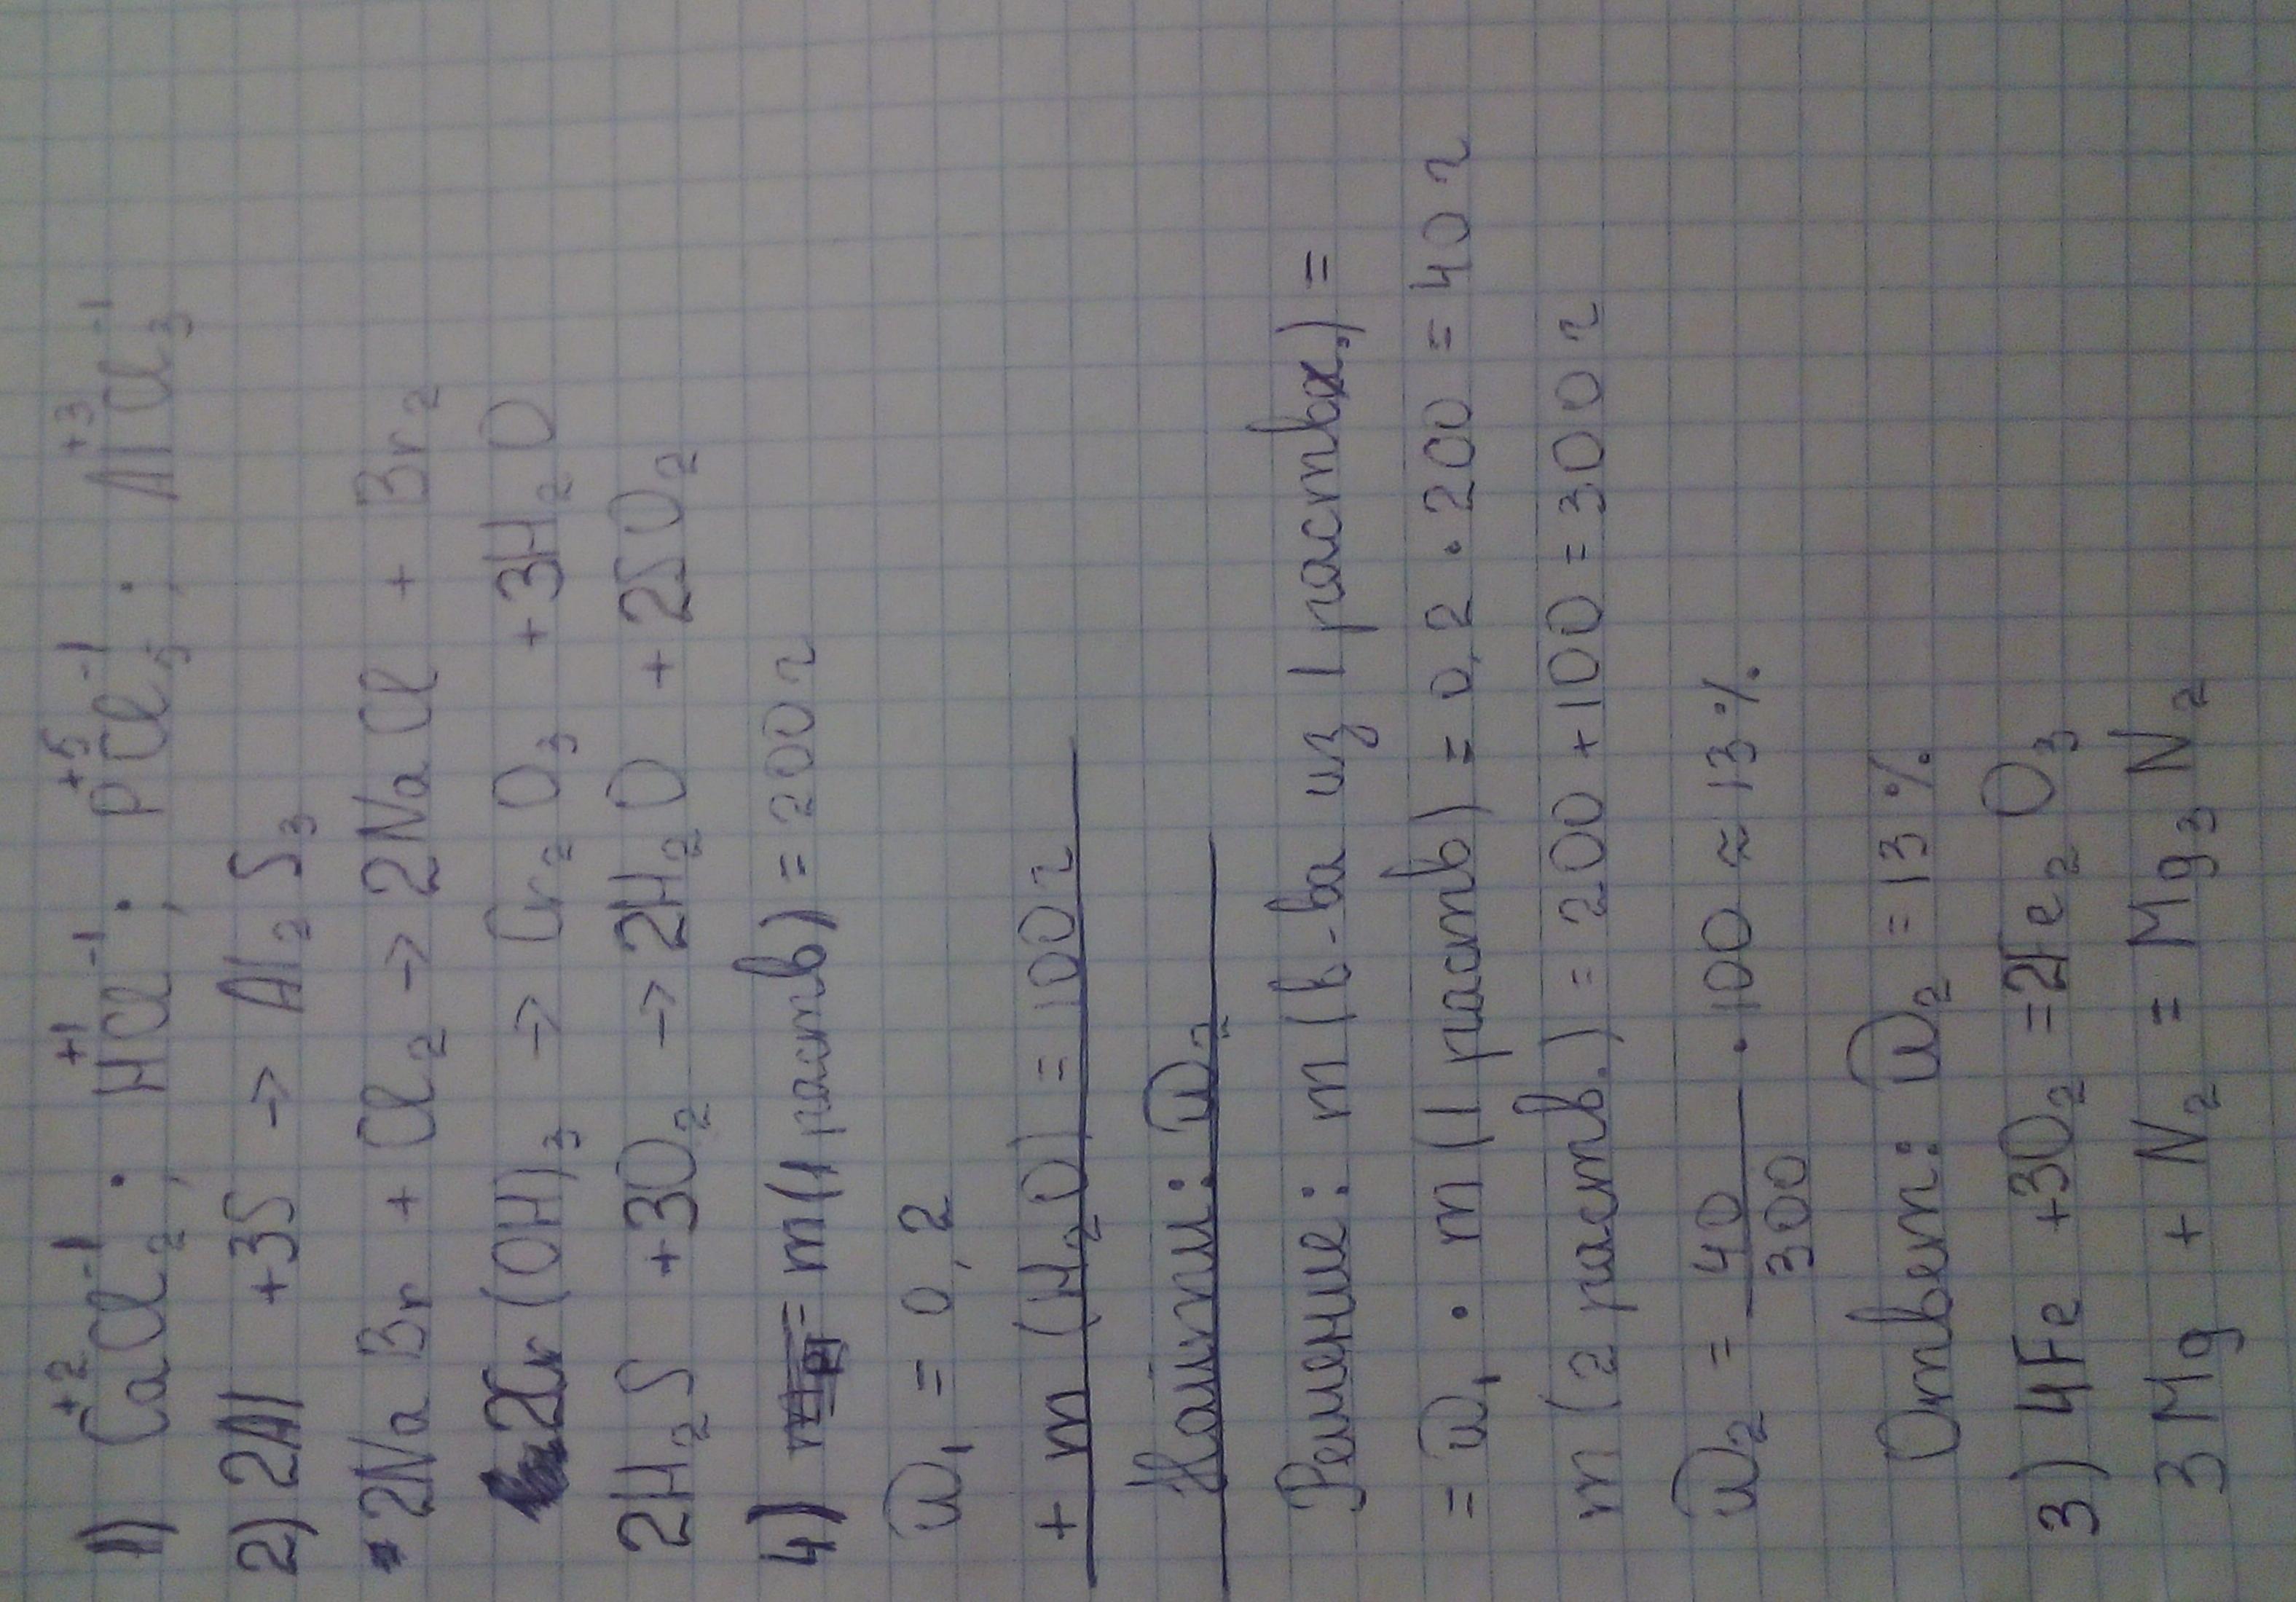 1) Ca⁺²Cl₂⁻¹; H⁺¹Cl⁻¹; P⁺⁵Cl₅⁻¹; Al⁺³Cl₃⁻¹
2) 2Al + 3S → Al₂S₃
2NaBr + Cl₂ → 2NaCl + Br₂
2Cr(OH)₃ → Cr₂O₃ + 3H₂O
2H₂S + 3O₂ → 2H₂O + 2SO₂
4) m(1 раств) = 200 г
ω₁ = 0,2
+ m(H₂O) = 100 г
Найти: ω₂
Решение: m(в-ва из 1 раства.) =
= ω₁ · m(1 раств) = 0,2 · 200 = 40 г
m(2 раств.) = 200 + 100 = 300 г
ω₂ = 40/300 · 100 ≈ 13%
Ответ: ω₂ = 13%
3) 4Fe + 3O₂ = 2Fe₂O₃
3Mg + N₂ = Mg₃N₂